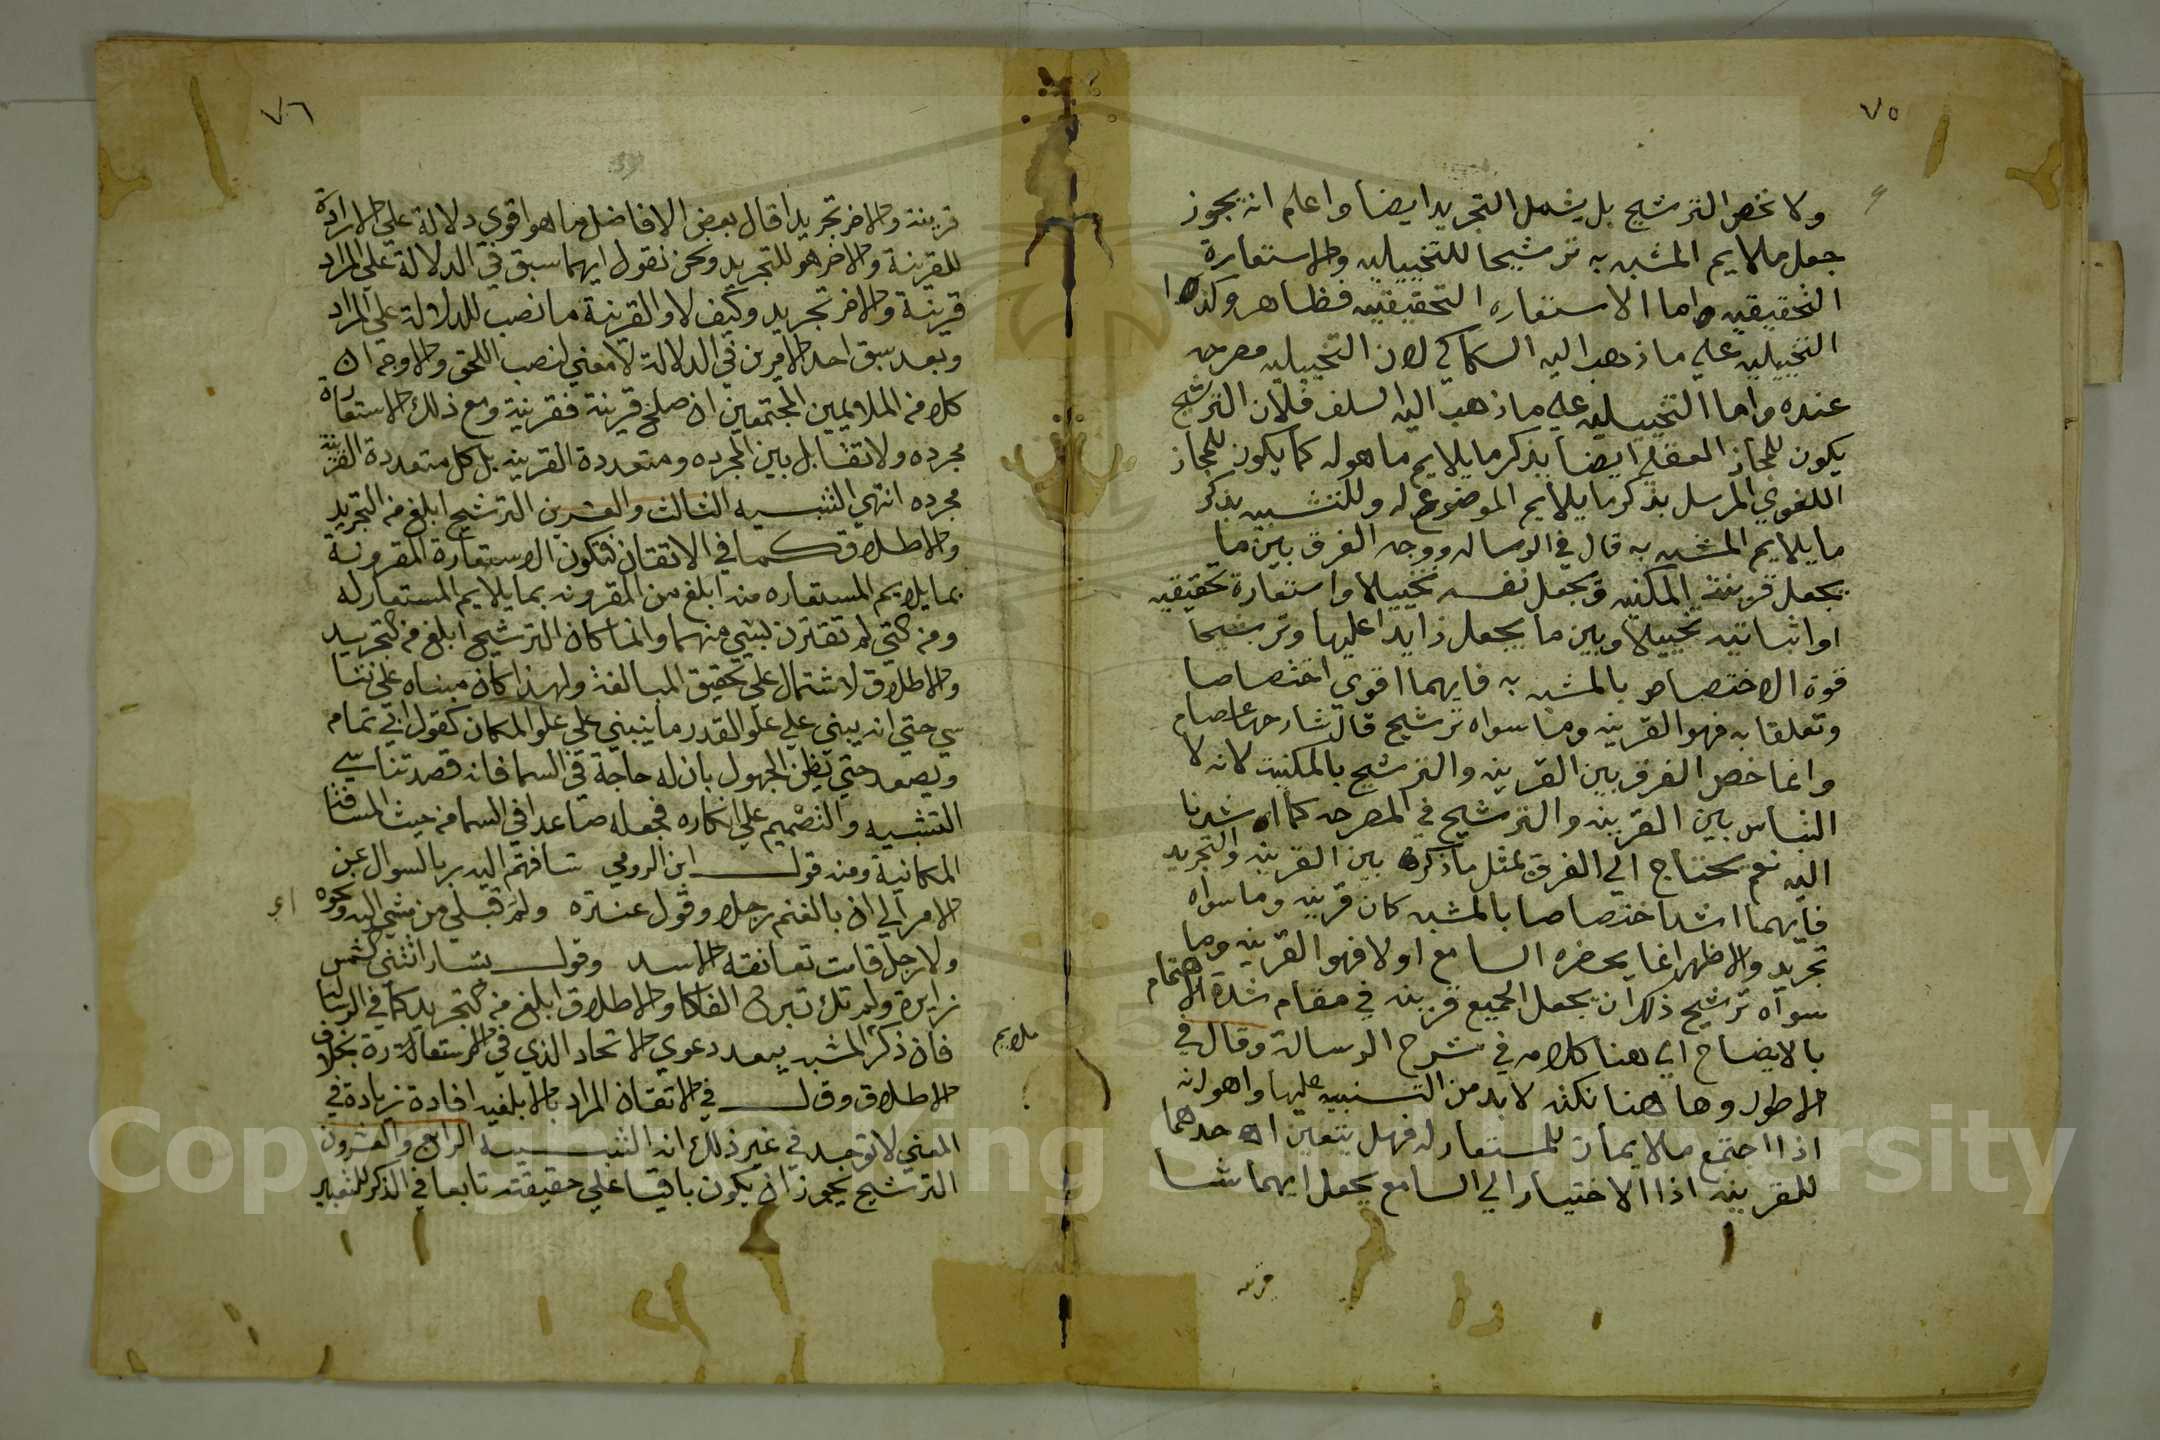 ٧٥
ولا يخص الترشيح بل يشمل التجريد ايضا واعلم انه يجوز
جعل ملايم المشبه به ترشيحا للتخييليه والاستعارة
التحقيقيه واما الاستعاره التحقيقيه فظاهر وكذا
التخييليه علي ما ذهب اليه السكاكي لان التخييليه مصرحه
عنده واما التخييليه علي ما ذهب اليه السلف فلان الترشيح
يكون للمجاز العقلي ايضا بذكر ما يلايم ما هو له كما يكون للمجاز
اللغوي المرسل بذكر ما يلايم الموضوع له وللتشبيه بذكر
ما يلايم المشبه به قال في الرساله ووجه الفرق بين ما
يجعل قرينة المكنيه ويجعل نفسه تخييلا واستعارة تحقيقيه
او اثباته تخييلا وبين ما يجعل زايدا عليها وترشيحا
قوة الاختصاص بالمشبه به فايهما اقوي اختصاصا
وتعلقا به فهو القرينه وما سواه ترشيح قال شارحها عصام
وانما خص الفرق بين القرينه والترشيح بالمكنيه لانه لا
التباس بين القرينه والترشيح في المصرحه كما ارشدنا
اليه نعم يحتاج الي الفرق بمثل ما ذكره بين القرينه والتجريد
فايهما اشد اختصاصا بالمشبه كان قرينه وما سواه
تجريد والاظهر انما يحضره السامع اولا فهو القرينه وما
سواه ترشيح ذلك ان يجعل الجميع قرينه في مقام شدة الاهتمام
بالايضاح اي هنا كلامه في شرح الرسالة وقال في
الاطول وها هنا نكته لا بد من التنبيه عليها وهو انه
اذا اجتمع ملايمان للمستعار له فهل يتعين احدهما
للقرينه اذا الاختيار الي السامع يجعل ايهما شا
قرينه
٧٦
قرينة والاخر تجريدا قال بعض الافاضل ما هو اقوي دلالة علي الارادة
للقرينة والاخر هو للتجريد ونحن نقول ايهما سبق في الدلالة علي المراد
قرينة والاخر تجريد وكيف لا والقرينة ما نصب للدلالة علي المراد
وبعد سبق احد الامرين في الدلالة لا معني لنصب اللاحق والاوجه ان
كلا من الملايمين المجتمعين ان صلح قرينة فقرينة ومع ذلك الاستعارة
مجرده ولا تقابل بين المجرده ومتعددة القرينه بل كل متعددة القرينة
مجرده انتهي التنبيه الثالث والعشرين الترشيح ابلغ من التجريد
والاطلاق كما في الاتقان فتكون الاستعارة المقرونة
بما يلايم المستعاره منه ابلغ من المقرونه بما يلايم المستعار له
ومن التي لم تقترن بشي منهما وانما كان الترشيح ابلغ من التجريد
والاطلاق لاشتمال علي تحقيق المبالغة ولهذا كان مبناه علي تنا
سي حتي انه يبني علي علو القدر ما ينبني علي علو المكان كقول ابي تمام
ويصعد حتي يظن الجهول بان له حاجة في السما فانه قصد تناسي
التشبيه والتصميم علي انكاره فجعله صاعدا في السما من حيث المسافة
المكانية ومنه قول ابن الرومي شافهتم البدر بالسوال عن
الامر الي ان بالغتم رجلا وقول عنترة ولم قبلي من مشي البدر نحوه
ولا رجل قامت تعانقه الاسد وقول بشار اتتني الشمس
زايرة ولم تك تبرح الفلكا والاطلاق ابلغ من التجريد كما في الرسالة
فان ذكر المشبه يبعد دعوي الاتحاد الذي في الاستعارة بخلاف
ملايم
الاطلاق وقال في الاتقان المراد بالابلغيه افادة زيادة في
المعني لا توجد في غير ذلك انه التنبيه الرابع والعشرون
الترشيح يجوز ان يكون باقيا علي حقيقته تابعا في الذكر للتعبير
Copyright © King Saud University